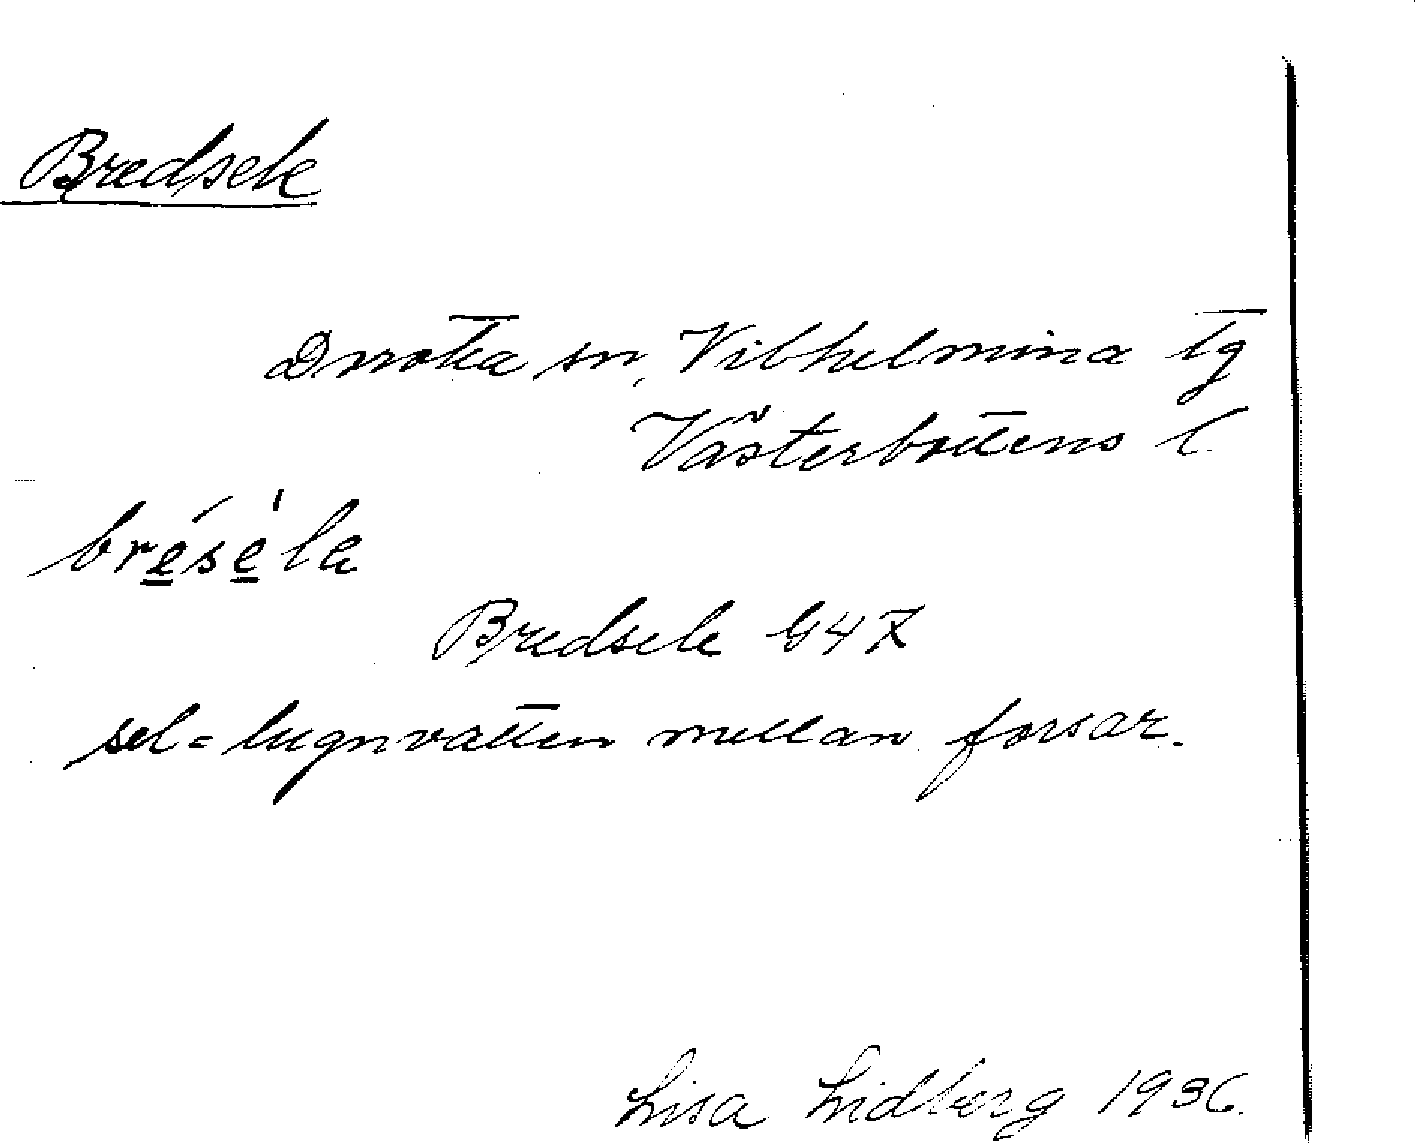 Bredsele
Dorotea sn, Vilhelmina tg
Västerbottens l.
bre̲´se̲ˈla
Bredsele G47
sel = lugnvatten mellan forsar.
Lisa Lidberg 1936.